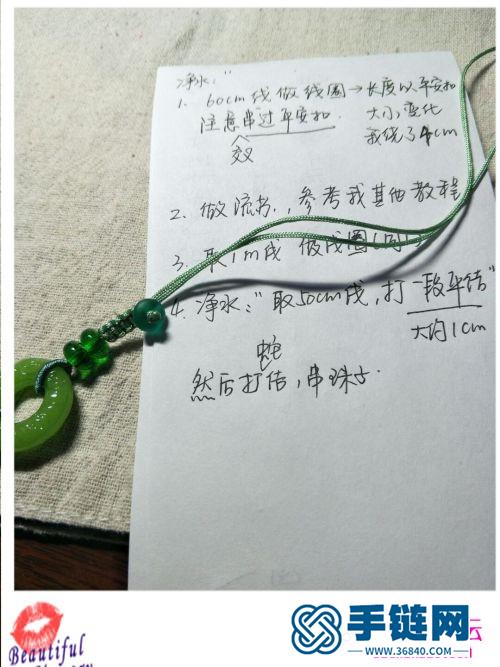 净水："
1. 60cm线做线圈→长度以平安扣
大小变化
注意串过平安扣.
我绕了4cm
2. 做流苏,参考我其他教程
3. 取1m线 做线圈(同1
4. 净水："取50cm线,打一段平结"
大约1cm
蛇
然后打结,串珠子.
Beautiful
手链网
www.36840.com